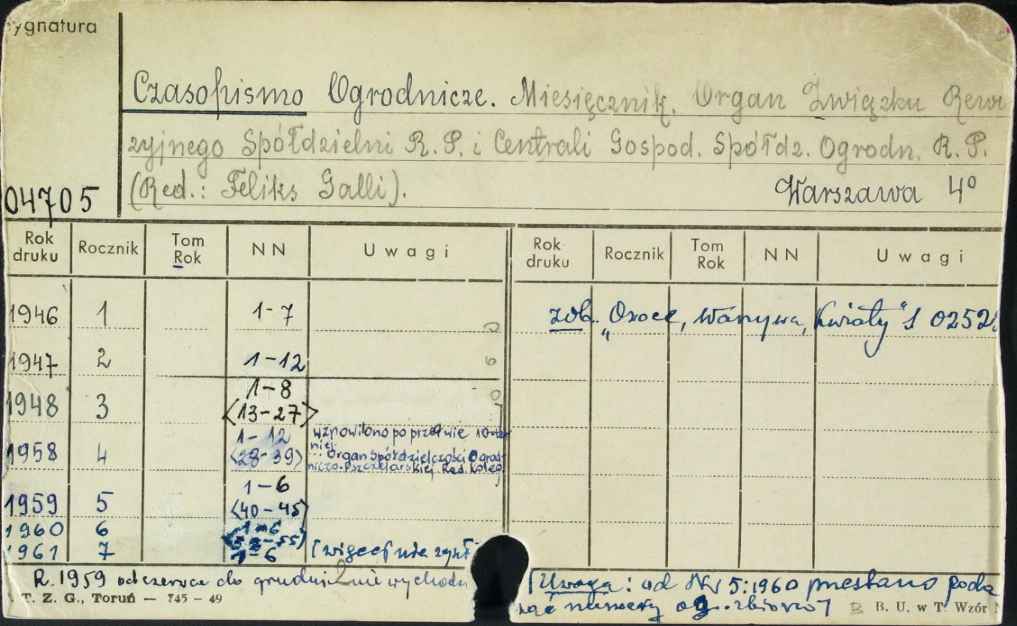 ygnatura
Czasopismo Ogrodnicze. Miesięcznik. Organ Związku Rewi
zyjnego Spółdzielni R. P. i Centrali Gospod. Spółdz. Ogrodn. R. P.
(Red.: Feliks Galli). Warszawa 4°
04705
Rok druku Rocznik Tom Rok NN Uwagi Rok druku Rocznik Tom Rok NN Uwagi
1946 1 1-7 zob. "Owoce, Warzywa, Kwiaty" 0252
1947 2 1-12
1948 3 1-8
<13-27>
1958 4 1-12 wznowiono po przerwie
<28-39> Organ Spółdzielczości Ogrod
niczo-Pszczelarskiej. Red. Koleg
1959 5 1-6
<40-45>
1960 6 1-6
1961 7 1-6 [więcej nie
R. 1959 od czerwca do grudnia nie wychodz
[Uwaga: od Nr 5:1960 przestano poda
wać numery og. zbioru]
T. Z. G., Toruń — 745 - 49 B. U. w T. Wzór